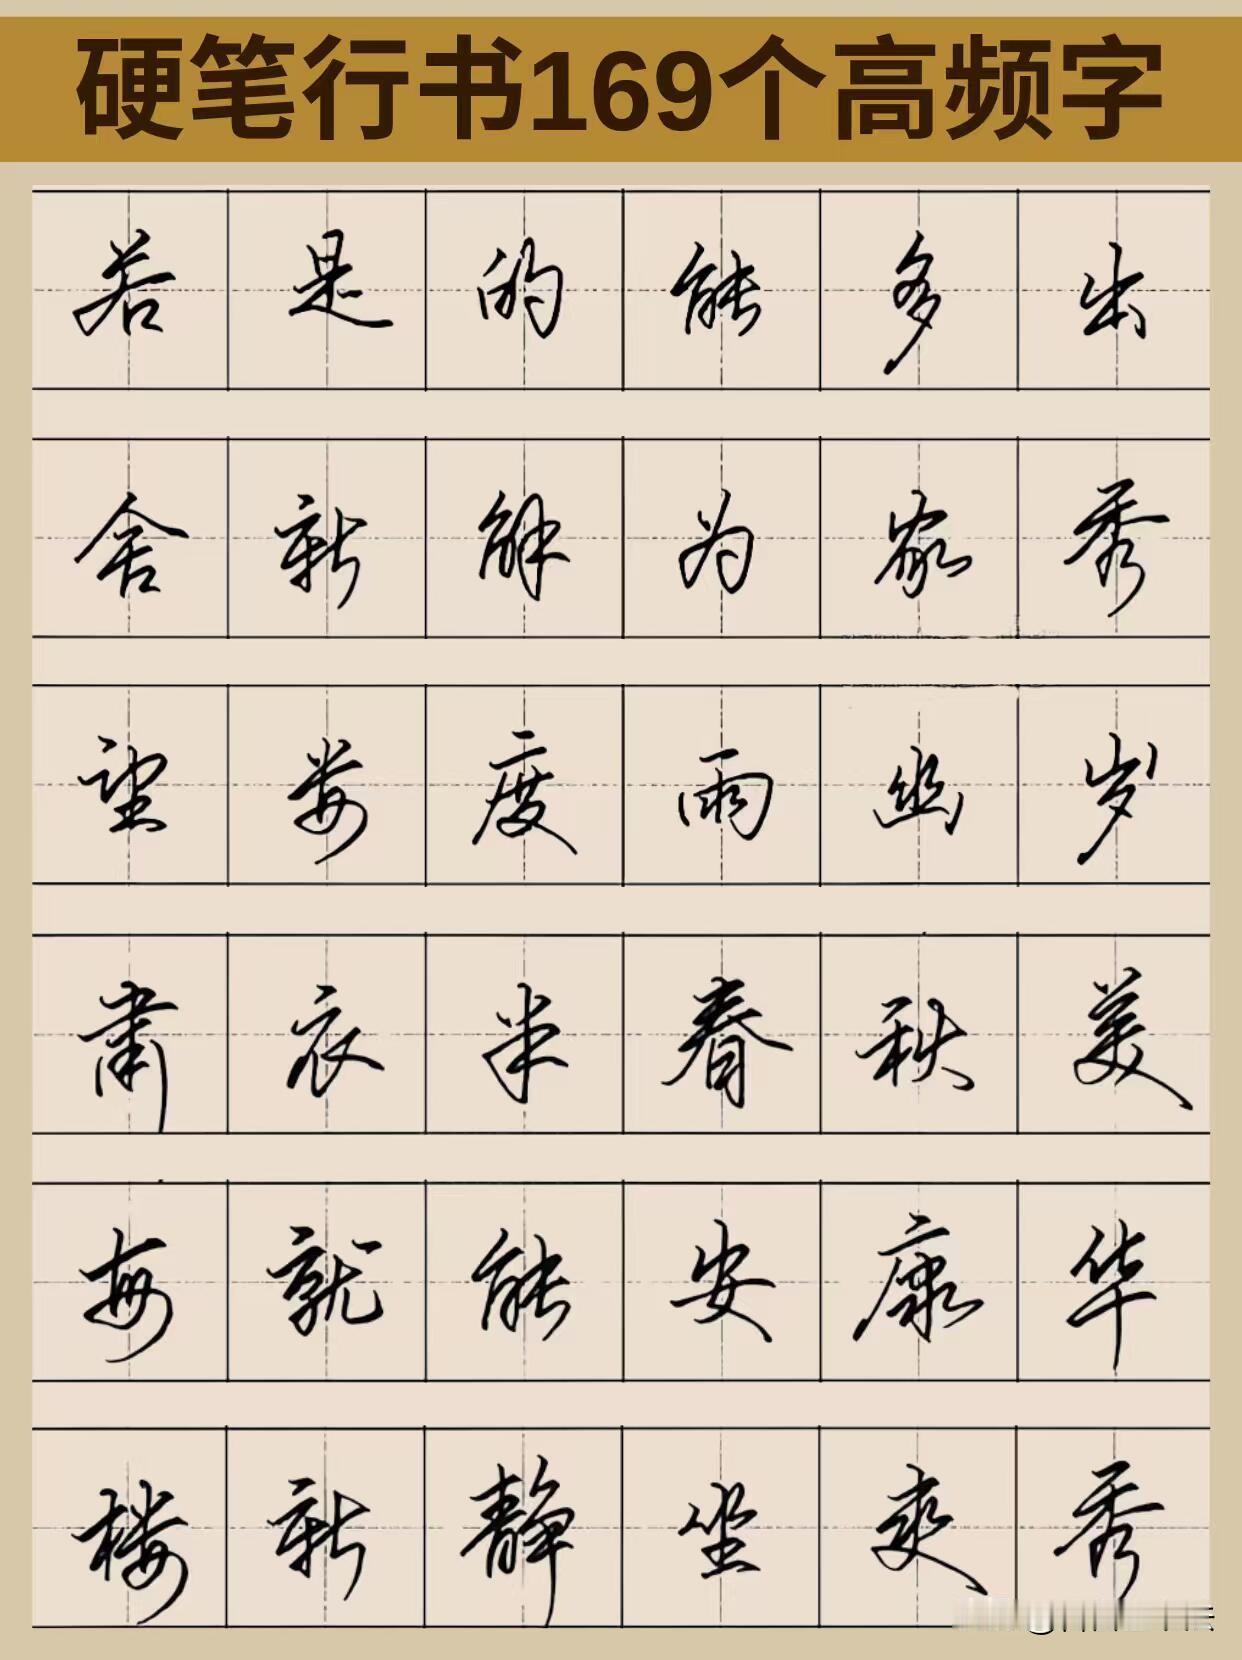 硬笔行书169个高频字
若是的能多出
舍新解为家秀
望娄度雨幽岁
肃衣半春秋美
每就能安康华
楼新静坐爽秀